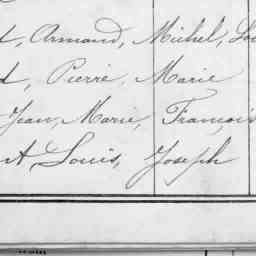 t, Armand, Michel, Lou
d, Pierre, Marie
Jean, Marie, François
t, Louis, Joseph